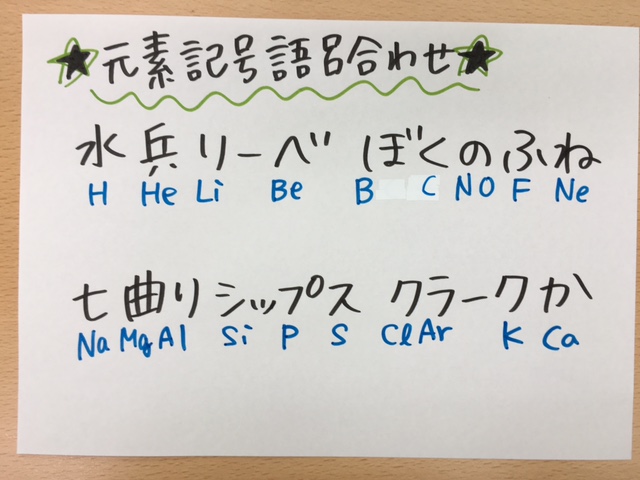 ★元素記号語呂合わせ★
水兵リーベ ぼくのふね
H He Li Be B C N O F Ne
七曲り シップス クラークか
Na Mg Al Si P S Cl Ar K Ca